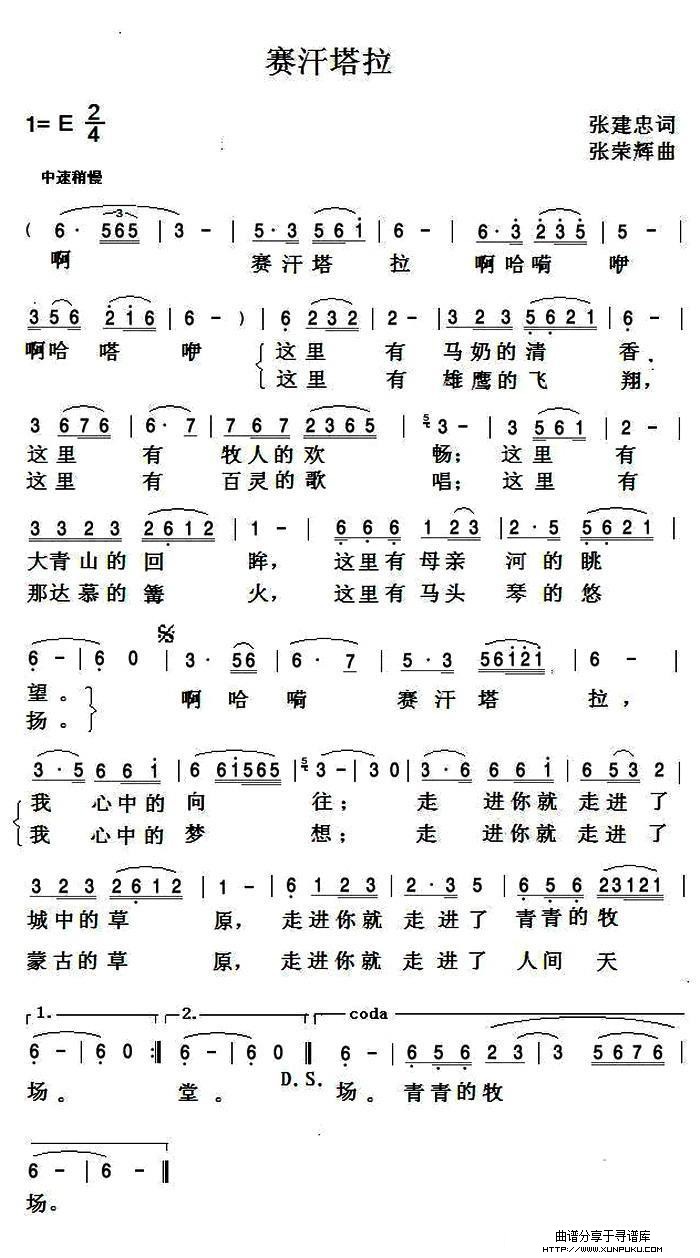 赛汗塔拉
1= E 2/4
张建忠词
张荣辉曲
中速稍慢
( 6· 565 | 3 - | 5·3 561 | 6 - | 6·3 235 | 5 - |
啊 赛汗塔 拉 啊哈嗬 咿
356 216 | 6 - ) | 6 232 | 2 - | 323 5621 | 6 - |
啊哈 嗒 咿 这里 有 马奶的清 香，
这里 有 雄鹰的飞 翔，
3 676 | 6· 7 | 767 2365 | 5 3 - | 3 561 | 2 - |
这里 有 牧人的欢 畅；这里 有
这里 有 百灵的歌 唱；这里 有
3323 2612 | 1 - | 666 123 | 2·5 5621 |
大青山的回 眸，这里有母亲 河的眺
那达慕的篝 火，这里有马头 琴的悠
6 - | 6 0 | 3· 56 | 6· 7 | 5·3 56121 | 6 - |
望。 啊哈 嗬 赛汗塔 拉，
扬。
3·5 661 | 6 61565 | 5 3 - | 3 0 | 3·6 661 | 653 2 |
我 心中的向 往；走 进你就走进了
我 心中的梦 想；走 进你就走进了
323 2612 | 1 - | 6 123 | 2·35 | 656 23121 |
城中的草 原，走进你就 走进了 青青的牧
蒙古的草 原，走进你就 走进了 人间 天
1. 2. coda
6 - | 6 0 :‖ 6 - | 6 0 ‖ 6 - | 656 23 | 3 - | 5676 |
场。 堂。 D.S. 场。青青的牧
6 - | 6 - ‖
场。
曲谱分享于寻谱库
HTTP://WWW.XUNPUKU.COM